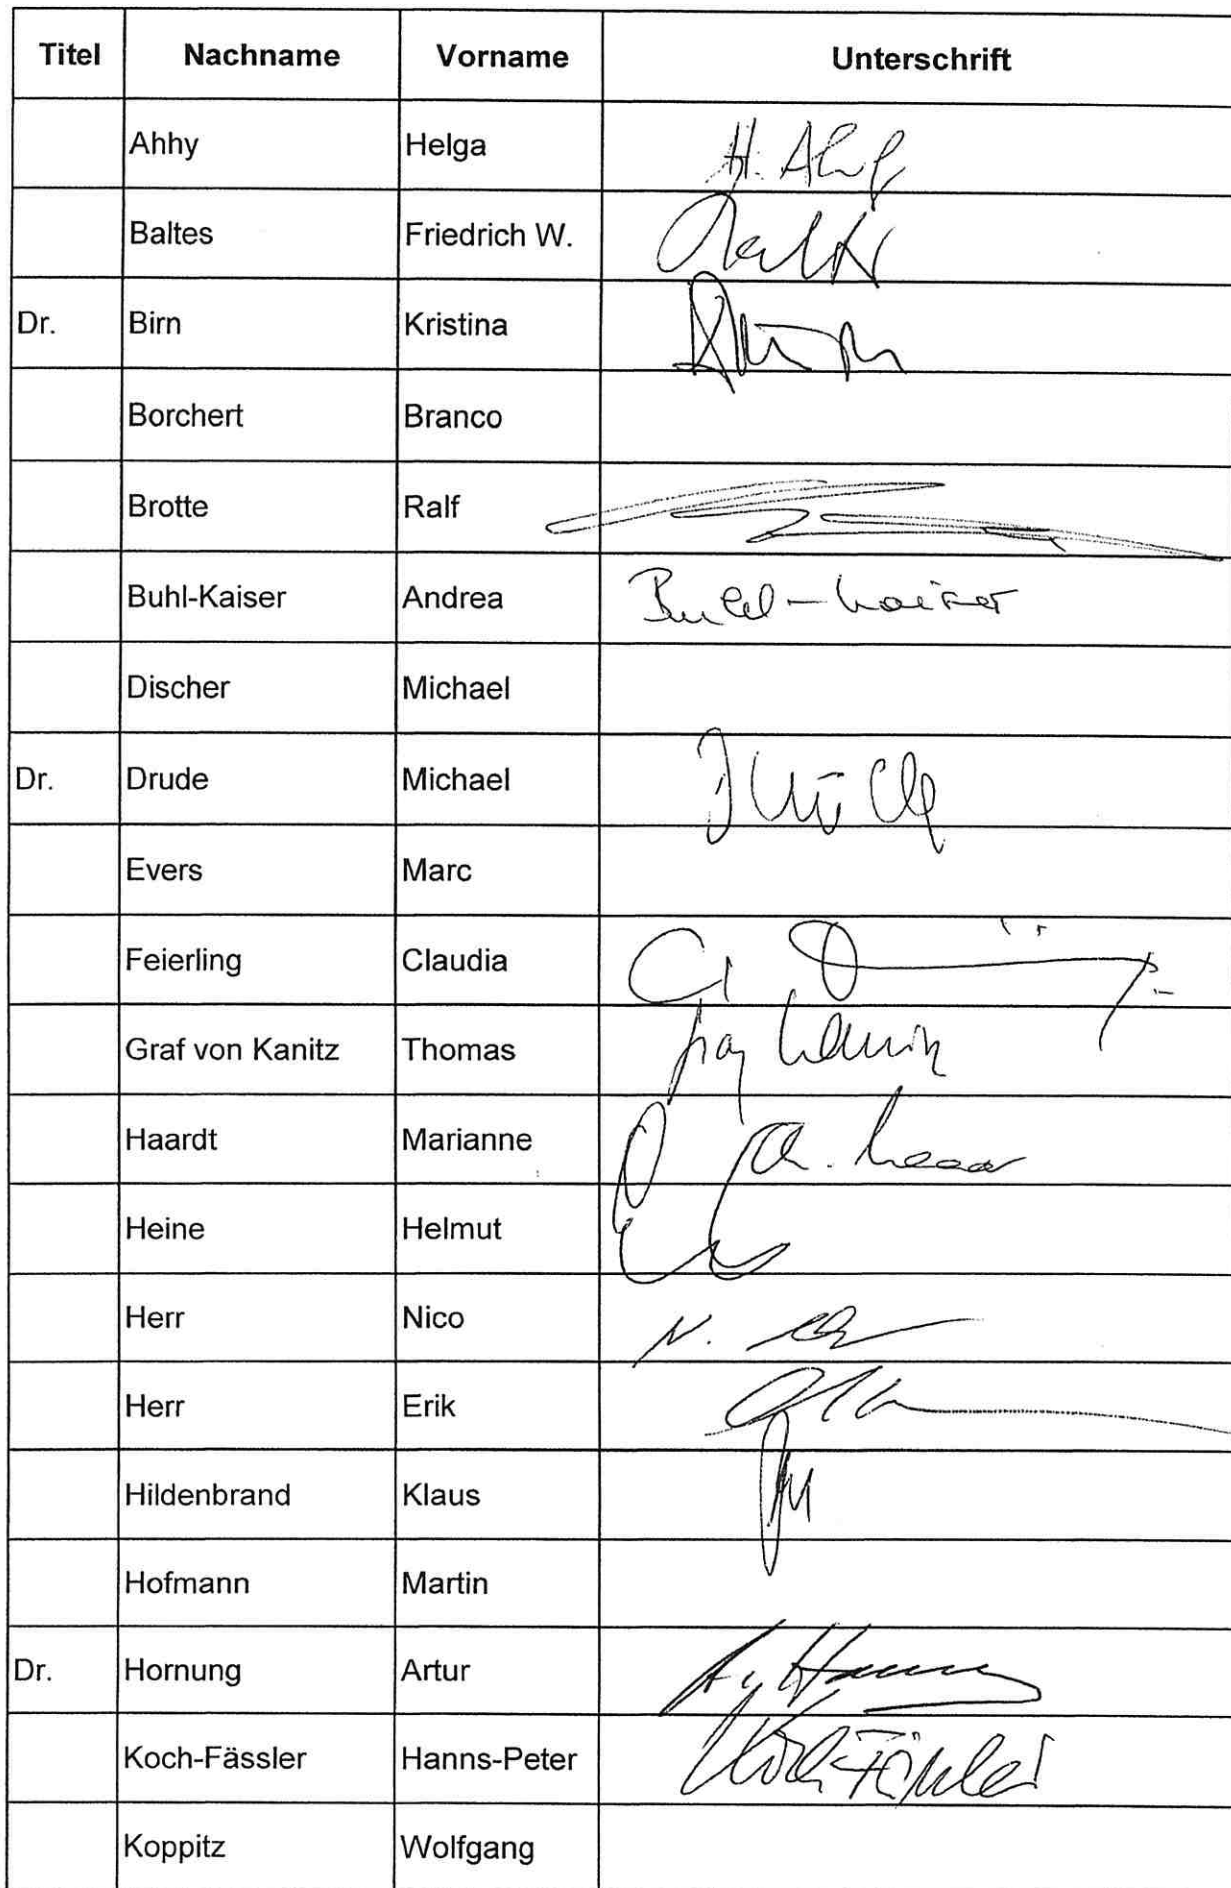 Titel Nachname Vorname Unterschrift
Ahhy Helga H. Ahhy
Baltes Friedrich W. Baltes
Dr. Birn Kristina
Borchert Branco
Brotte Ralf
Buhl-Kaiser Andrea Buhl-Kaiser
Discher Michael
Dr. Drude Michael
Evers Marc
Feierling Claudia
Graf von Kanitz Thomas Graf Kanitz
Haardt Marianne
Heine Helmut
Herr Nico N.
Herr Erik
Hildenbrand Klaus
Hofmann Martin
Dr. Hornung Artur A.
Koch-Fässler Hanns-Peter Koch-Fässler
Koppitz Wolfgang